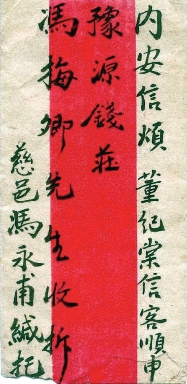 内安信煩董纪棠信客順申
豫源錢莊
馮梅卿先生收拆
慈邑馮永甫緘托